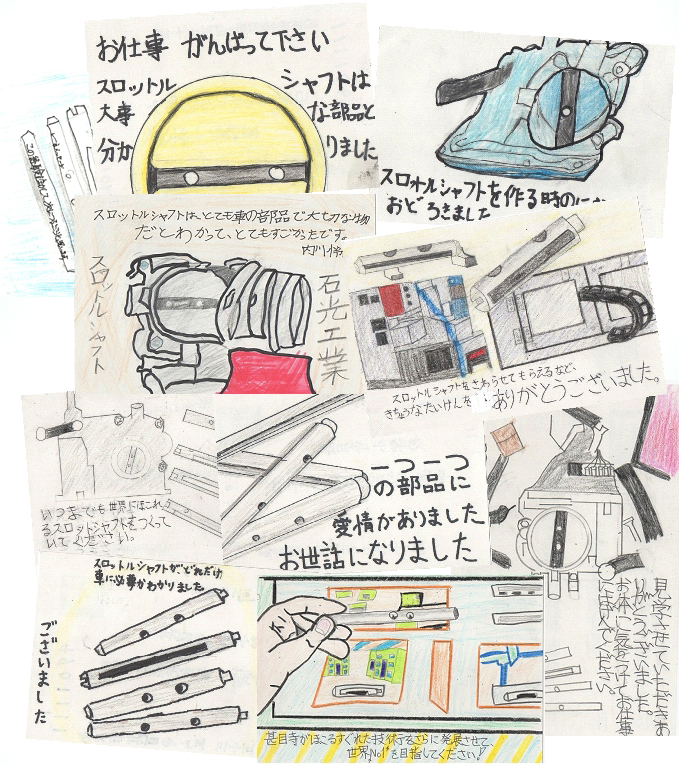 お仕事 がんばって下さい
スロットル シャフトは
大事 な部品と
分か りました
スロットルシャフトを作る時の
おどろきました
スロットルシャフトは、とても車の部品で大切な物
だとわかって、とてもすごかったです。
スロットルシャフト
石光工業
スロットルシャフトをさわらせてもらえるなど、
きちょうなたいけんを
ありがとうございました。
いつまでも世界にほこれ
るスロットシャフトをつくって
いてください。
一つ一つ
の部品に
愛情がありました
お世話になりました
見学させていただきあ
りがとうございました。
お体に気をつけてお仕事
に励んでください。
スロットルシャフトがどれだけ
車に必要かわかりました
ございました
甚目寺がほこるすぐれた技術をさらに発展させて、
世界No1を目指してください!!